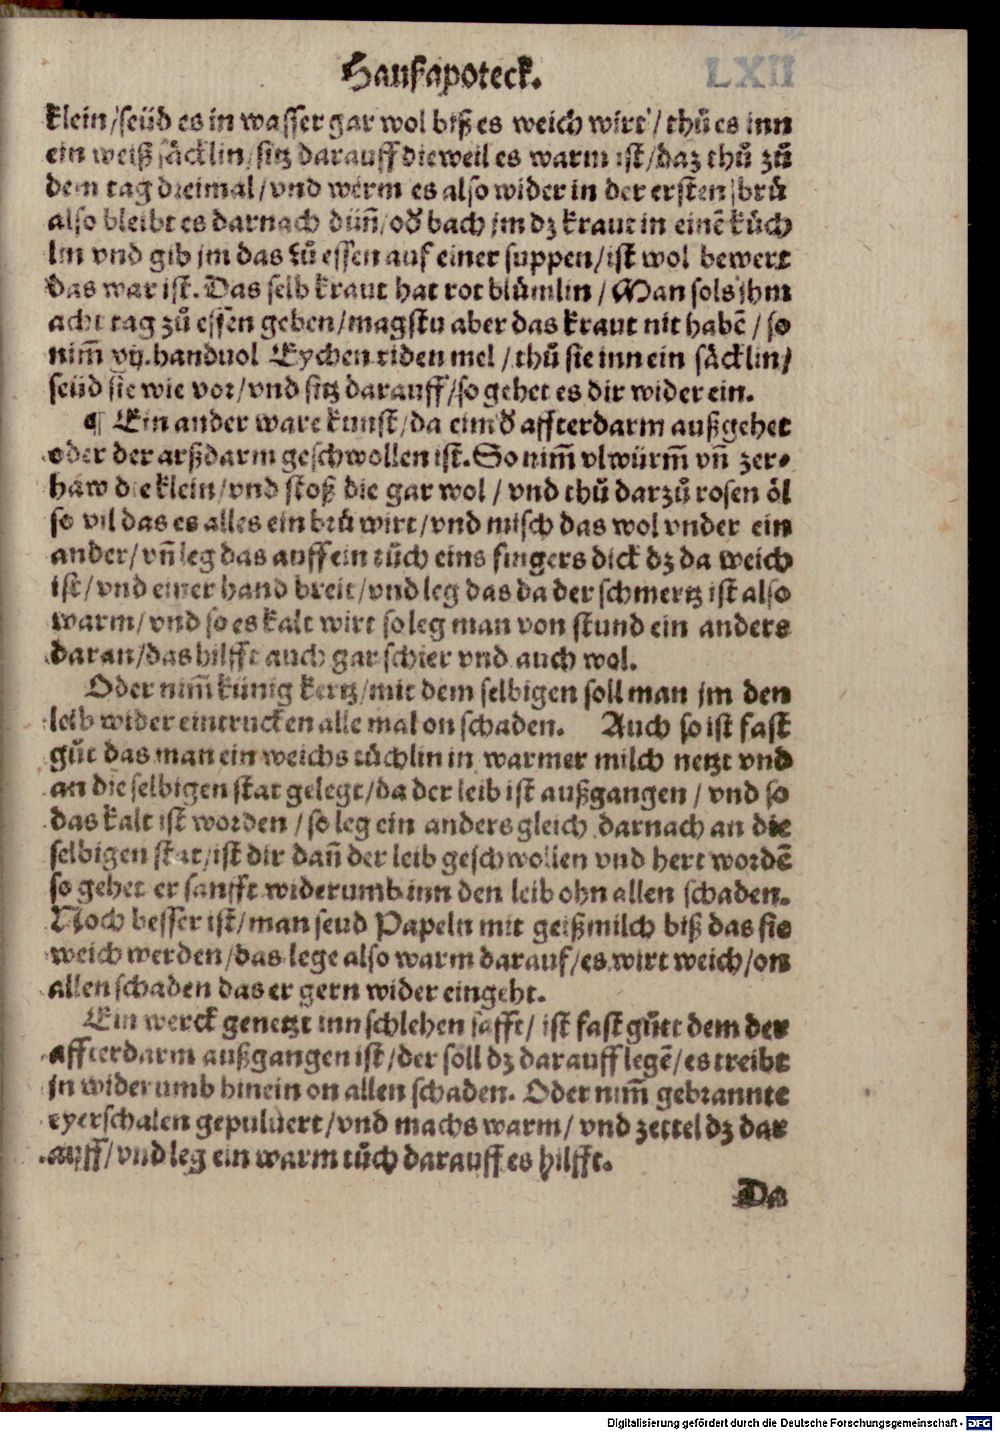 Haußapoteck. LXII
klein/seüd es in wasser gar wol biß es weich wirt/thů es inn
ein weiß säcklin/sitz darauff dieweil es warm ist/daz thů zů
dem tag dreimal/vnd werm es also wider in der ersten brů
also bleibt es darnach diñ/od̄ bach jm dz kraut in einē kůch
lin vnd gib jm das zů essen auf einer suppen/ist wol bewert
das war ist. Das selb kraut hat rot blůmlin/Man sols jhm
acht tag zů essen geben/magstu aber das kraut nit habē/so
nim̄ vij. handuol Eychen riden mel/thů sie inn ein säcklin/
seüd sie wie vor/vnd sitz darauff/so gehet es dir wider ein.
¶ Ein ander ware kunst/da eim d̄ affterdarm außgehet
oder der arßdarm geschwollen ist. So nim̄ vlwürm̄ vñ zer⸗
haw die klein/vnd stoß die gar wol/vnd thů darzů rosen öl
so vil das es alles ein brů wirt/vnd misch das wol vnder ein
ander/vñ leg das auff ein tůch eins fingers dick dz da weich
ist/vnd einer hand breit/vnd leg das da der schmertz ist also
warm/vnd so es kalt wirt so leg man von stund ein anders
daran/das hilfft auch gar schier vnd auch wol.
Oder nim̄ künig kertz/mit dem selbigen soll man jm den
leib wider eintrucken alle mal on schaden. Auch so ist fast
gůt das man ein weichs tůchlin in warmer milch netzt vnd
an die selbigen stat gelegt/da der leib ist außgangen/vnd so
das kalt ist worden/so leg ein anders gleich darnach an die
selbigen stat/ist dir dañ der leib geschwollen vnd hert wordē
so gehet er sanfft widerumb inn den leib ohn allen schaden.
Noch besser ist/man seud Papeln mit geißmilch biß das sie
weich werden/das lege also warm darauf/es wirt weich/on
allen schaden das er gern wider eingeht.
Ein werck genetzt inn schlehen safft/ist fast gůtt dem der
affterdarm außgangen ist/der soll dz darauff legē/es treibt
jn widerumb hinein on allen schaden. Oder nim̄ gebrannte
eyerschalen gepuluert/vnd machs warm/vnd zettel dz dar
auff/vnd leg ein warm tůch darauff es hilfft.
Digitalisierung gefördert durch die Deutsche Forschungsgemeinschaft - DFG